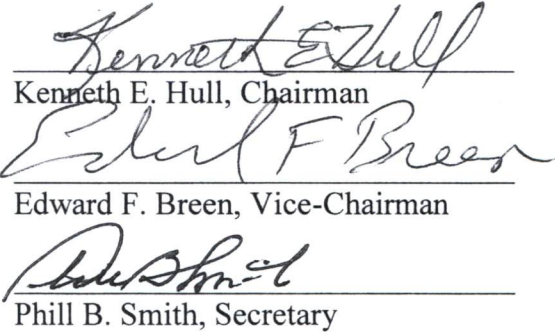 Kenneth E Hull
Kenneth E. Hull, Chairman
Edward F Breen
Edward F. Breen, Vice-Chairman
Phill B. Smith, Secretary